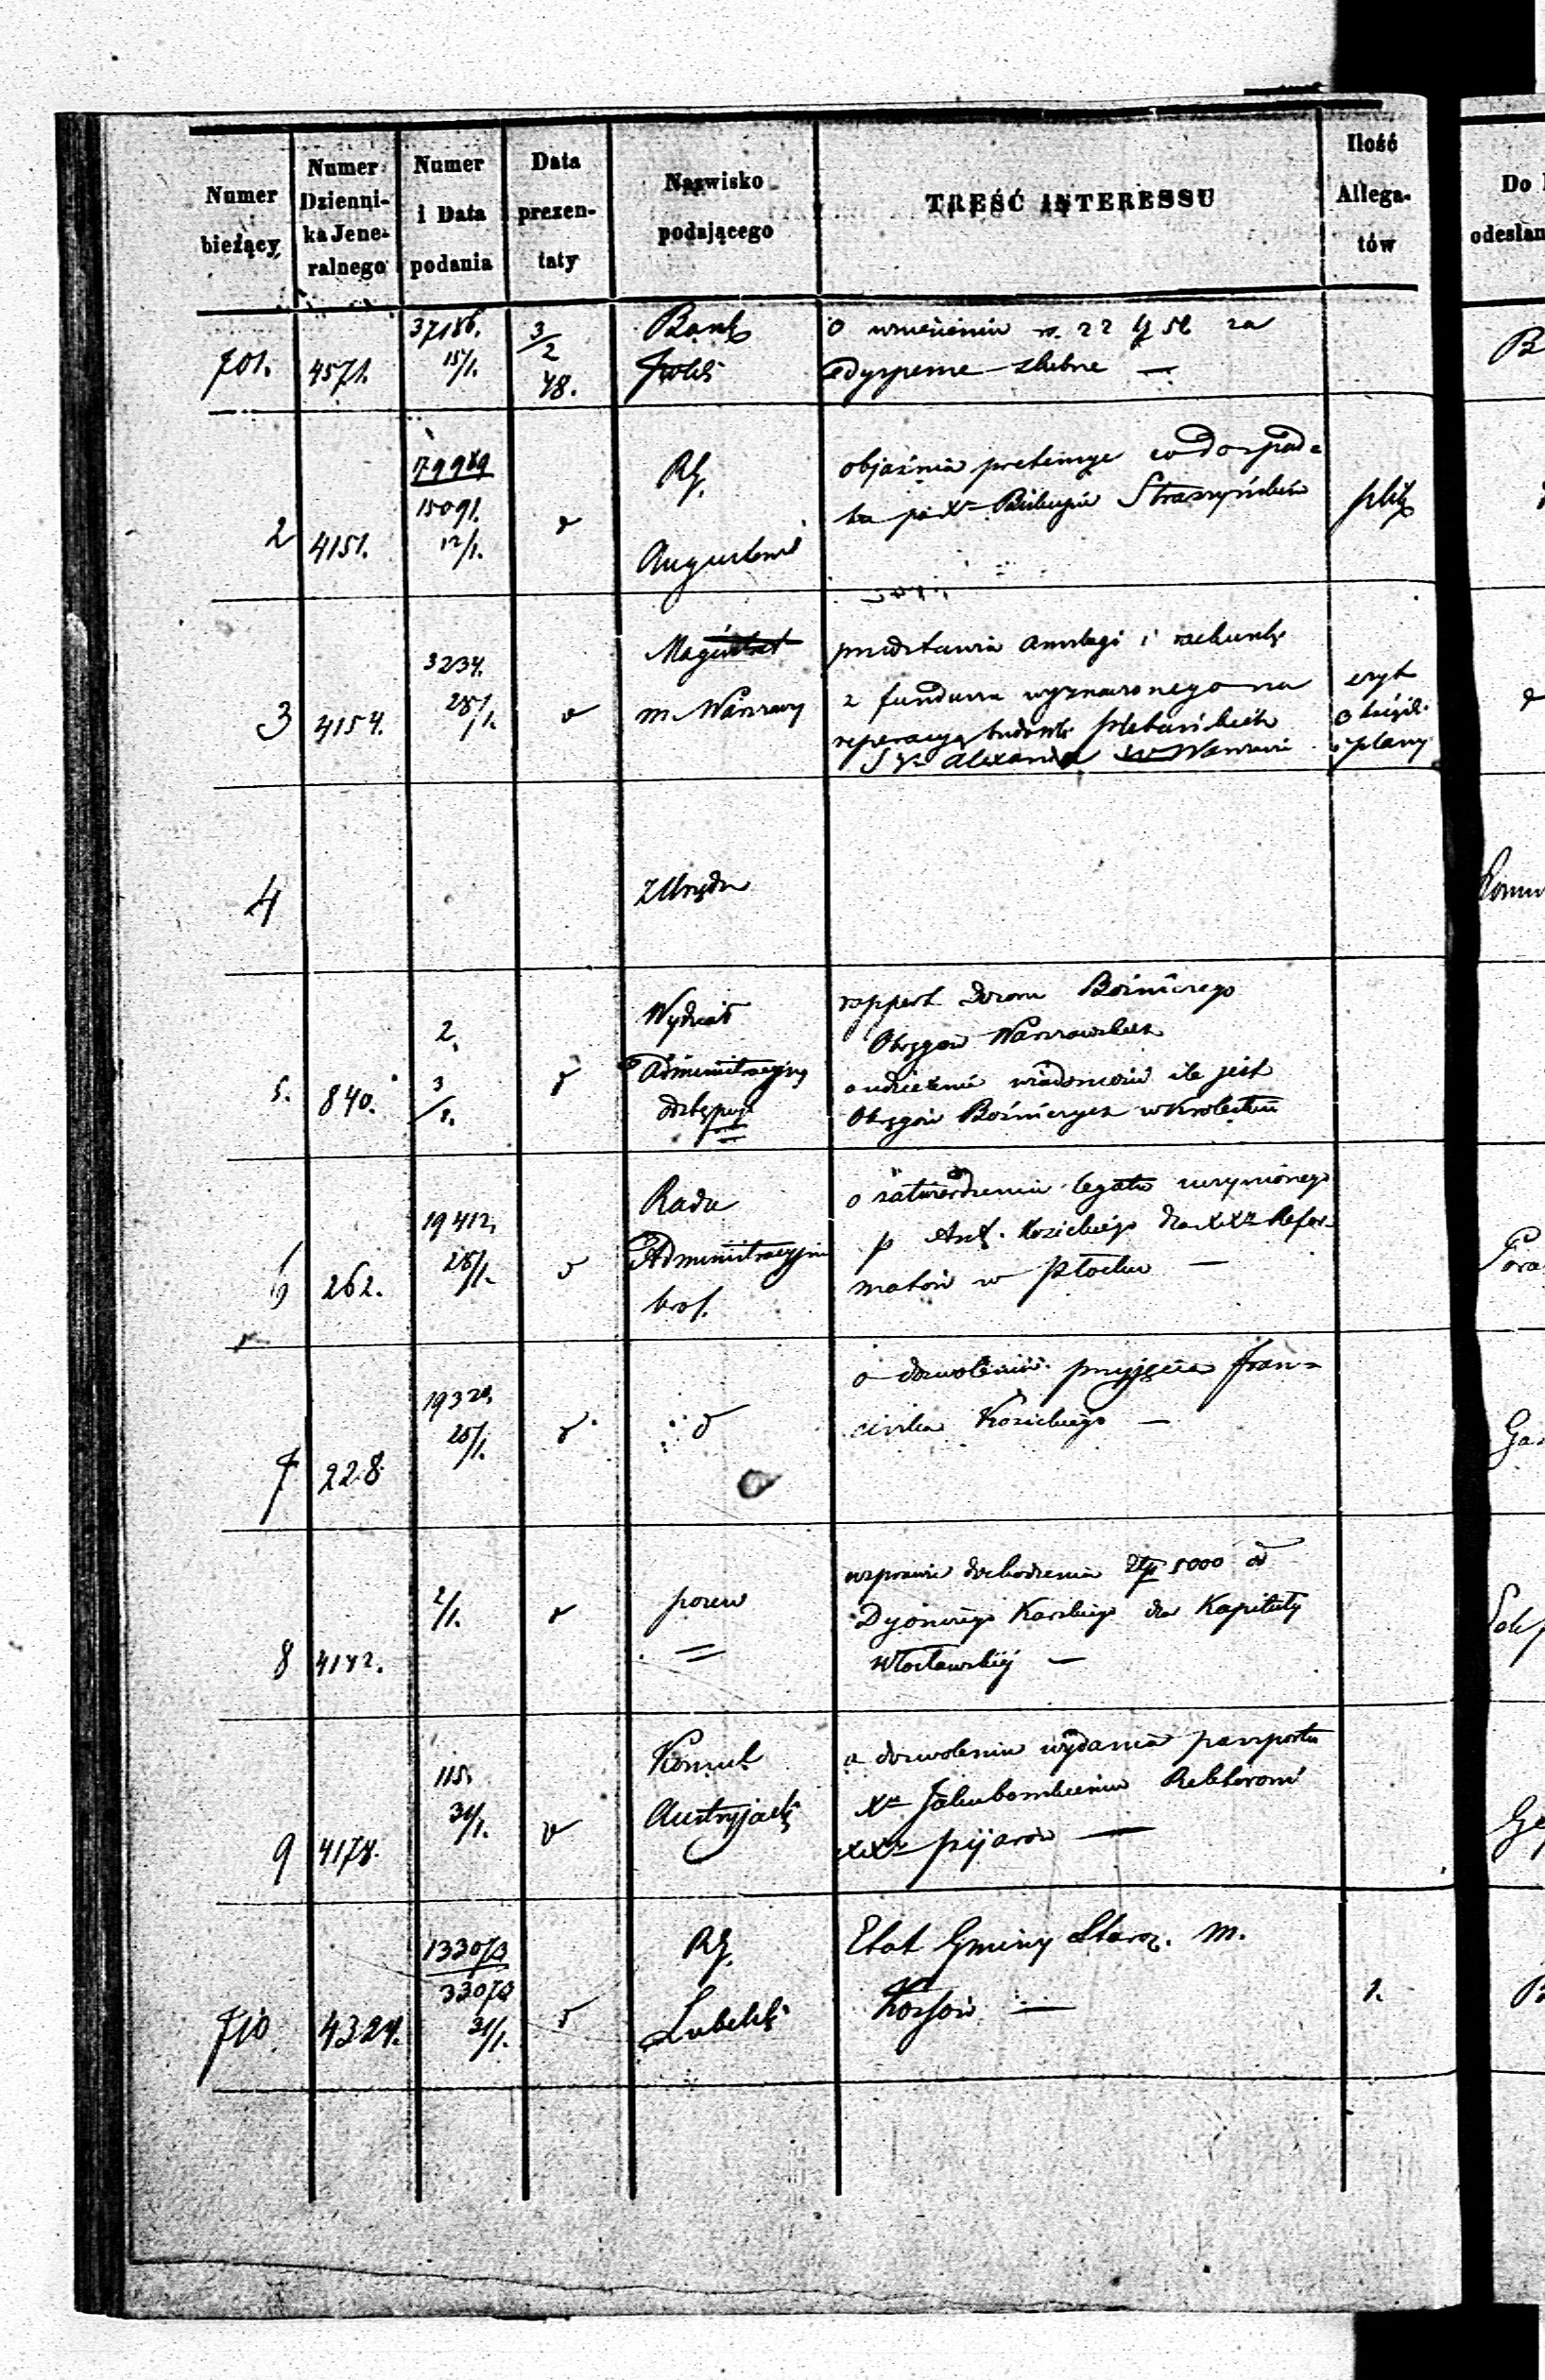 Numer bieżący
Numer Dzienni- ka Jene- ralnego
Numer i Data podania
Data prezen- taty
Nazwisko podającego
TREŚĆ INTERESSU
Ilość Allega- tów
Do
odesłan
701. 4571. 37186. 15/1. 3/2 48.
Bank
Polski
o wniesieniu r. 22 k 52 za
dyspense ślubne —
2 4151. 79989 15091. 12/1. d
RG.
Augustows
objaśnia pretensye co do spad=
ku po Xe Biskupie Straszyńskim
plik
3 4154. 3234. 28/1. d
Magistrat
m. Warszawy
przedstawia anszlagi i rachunki
z funduszu wyznaczonego na
reperacyą budowli plebańskich
S go Alexandra w Warszawie
i plany
4
z Urzędu
5. 840. 2. 3/1. d
Wydział
Administracyjny
rapport Dozoru Bożniczego
Okręgów Warszawskich
o udzielenie wiadomości ile jest
Okręgów Bożniczych w Krolestwie
6 262. 19412. 28/1. d
Rada
Administracyjna
Krol.
o zatwierdzenie legatu uczynionego
p Ant. Kozickiego dla XXz Refor-
matów w Płocku —
7 228 19320. 20/1. d
d
o dozwolenie przyjęcia Fran=
ciszka Kozickiego —
8 4182. 2/1. d
pozew
w sprawie dochodzenia Złp 5000 od
Dyonizego Karskiego dla Kapituły
Włocławskiej —
9 4178. 115. 31/1. d
Konsul
Austryjacki
o dozwolenie wydania passportu
Xu Jakubowskiemu Rektorowi
XXz pijarów —
710 4324. 133073 33073 31/1. d
RG.
Lubelski
Etat Gminy Staroz. m.
1.